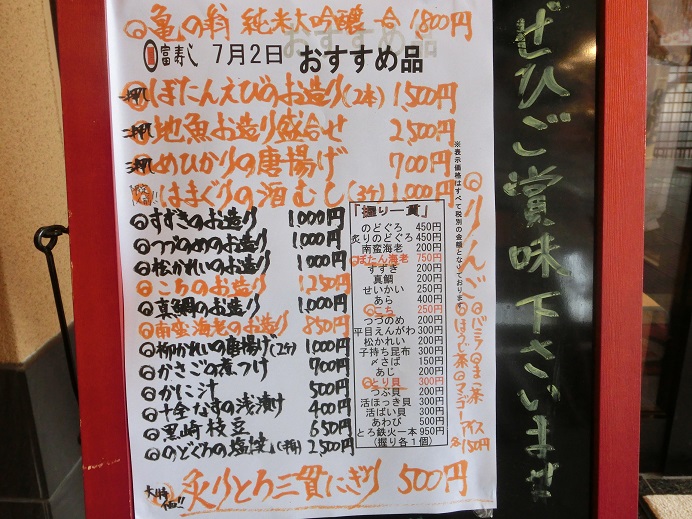 ◎亀の翁 純米大吟醸 一合 1800円
富寿し 7月2日 おすすめ品
一押し ぼたんえびのお造り(2本) 1,500円
二押し 地魚お造り盛合せ 2,500円
三押し めひかりの唐揚げ 700円
はまぐりの酒むし(3ケ) 1,000円
◎すずきのお造り 1,000円
◎つづのめのお造り 1,000円
◎松かれいのお造り 1,000円
◎こちのお造り 1,250円
◎真鯛のお造り 1,000円
◎南蛮海老のお造り 850円
◎柳かれいの唐揚げ(2ケ) 1,000円
◎かさごの煮つけ 700円
◎かに汁 500円
◎十全なすの浅漬け 400円
◎黒崎枝豆 650円
◎のどぐろの塩焼(1本) 2,500円
炙りとろ三貫にぎり 500円
「握り一貫」
のどぐろ 450円
炙りのどぐろ 450円
南蛮海老 200円
◎ぼたん海老 750円
すずき 200円
真鯛 200円
せいかい 250円
あら 400円
◎こち 250円
つづのめ 200円
平目えんがわ 300円
松かれい 200円
子持ち昆布 300円
〆さば 150円
あじ 200円
◎とり貝 300円
つぶ貝 200円
活ほっき貝 300円
活ばい貝 300円
あわび 500円
とろ鉄火一本 950円
(握り各1個)
※表示価格はすべて税別の金額となっております。
◎りんご
◎バニラ ◎まっ茶
◎ほうじ茶 ◎マンゴー
アイス
各150円
ぜひご賞味下さいませ